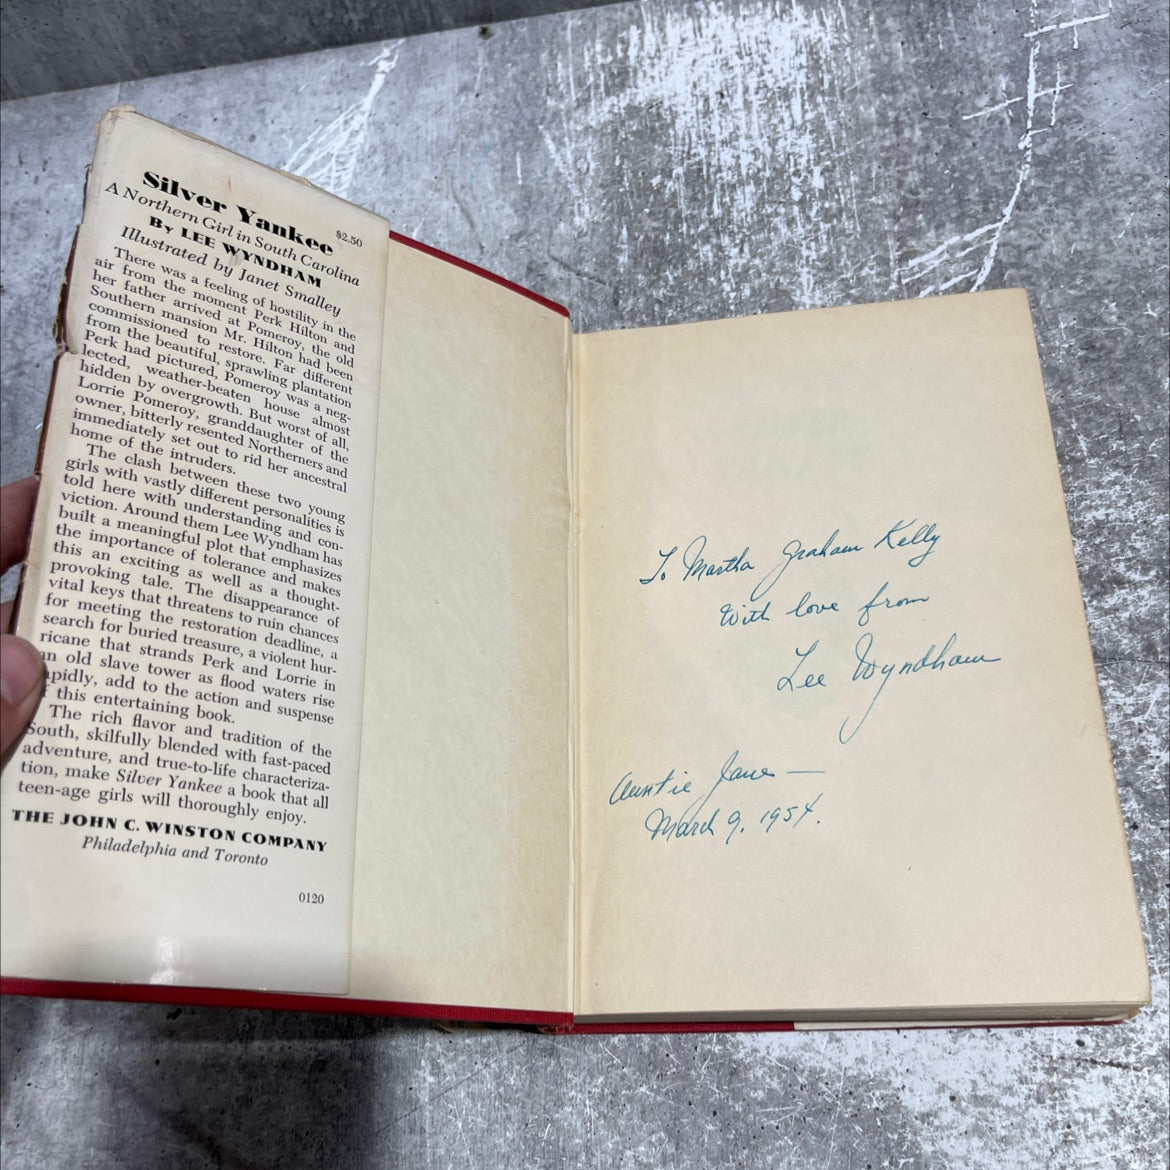 Silver Yankee
$2.50
A Northern Girl in South Carolina
By LEE WYNDHAM
Illustrated by Janet Smalley
There was a feeling of hostility in the
air from the moment Perk Hilton and
her father arrived at Pomeroy, the old
Southern mansion Mr. Hilton had been
commissioned to restore. Far different
from the beautiful, sprawling plantation
Perk had pictured, Pomeroy was a neg-
lected, weather-beaten house almost
hidden by overgrowth. But worst of all,
Lorrie Pomeroy, granddaughter of the
owner, bitterly resented Northerners and
immediately set out to rid her ancestral
home of the intruders.
The clash between these two young
girls with vastly different personalities is
told here with understanding and con-
viction. Around them Lee Wyndham has
built a meaningful plot that emphasizes
the importance of tolerance and makes
this an exciting as well as a thought-
provoking tale. The disappearance of
vital keys that threatens to ruin chances
for meeting the restoration deadline, a
search for buried treasure, a violent hur-
ricane that strands Perk and Lorrie in
an old slave tower as flood waters rise
apidly, add to the action and suspense
f this entertaining book.
The rich flavor and tradition of the
South, skilfully blended with fast-paced
adventure, and true-to-life characteriza-
tion, make Silver Yankee a book that all
teen-age girls will thoroughly enjoy.
THE JOHN C. WINSTON COMPANY
Philadelphia and Toronto
0120
To Martha Graham Kelly
With love from
Lee Wyndham
Auntie Jane —
March 9, 1954.